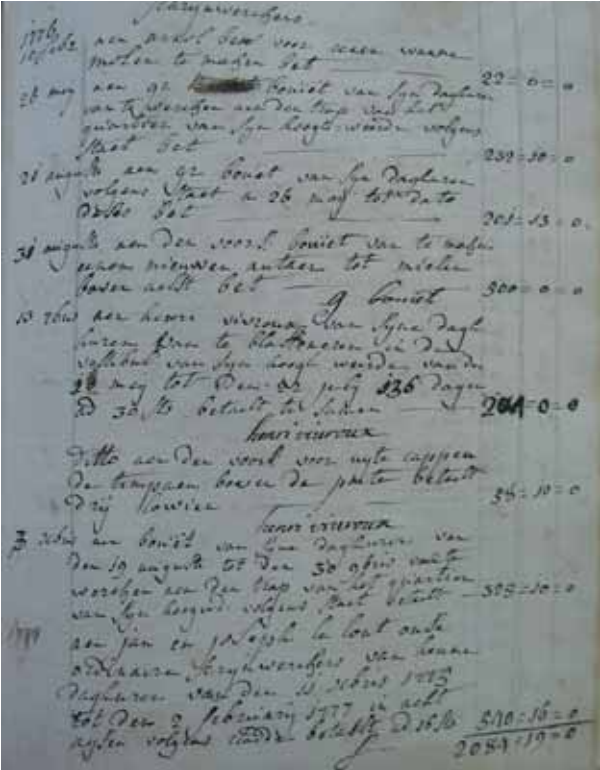 Scrijnwerckers
1776
aen arnol voor eenen wanne
molen te maken bet 22=0=0
26 meij aen gr boviet van sijn daghuren
van te wercken aen den trap van het
quartier van sijn hoogh weerde volgens
staet bet 232=10=0
21 augusti aen gr boviet van sijn daghuren
volgens staet a 26 meij tot dato
deses bet 201=13=0
31 augusti aen den voors boviet van te maken
eenen nieuwen autaer tot mielen
boven aelst bet 300=0=0
g boviet
13 7bris aen henri vivroux van sijne dagh
huren van te in den
vestibul van sijn hoogh weerde van den
meij tot den julij 136 dagen
ad 30 st betaelt te samen 204=0=0
henri vivroux
Ditto aen den voors voor uyte cappen
de timpaen boven de porte betaelt
drij 38=10=0
henri vivroux
3 xbris aen boviet van sijne daghuren van
den 19 augusti tot den 30 9bris van te
wercken aen den trap van het quartier
van sijn hoogw volgens staet betaelt 328=10=0
aen jan en joseph le
ordinaire scrijnwerckers van hunne
daghuren van den 11 xbris 1775
tot den 2 februarij 1777 in acht
volgens betaelt ad 16 st 510=16=0
2084=19=0